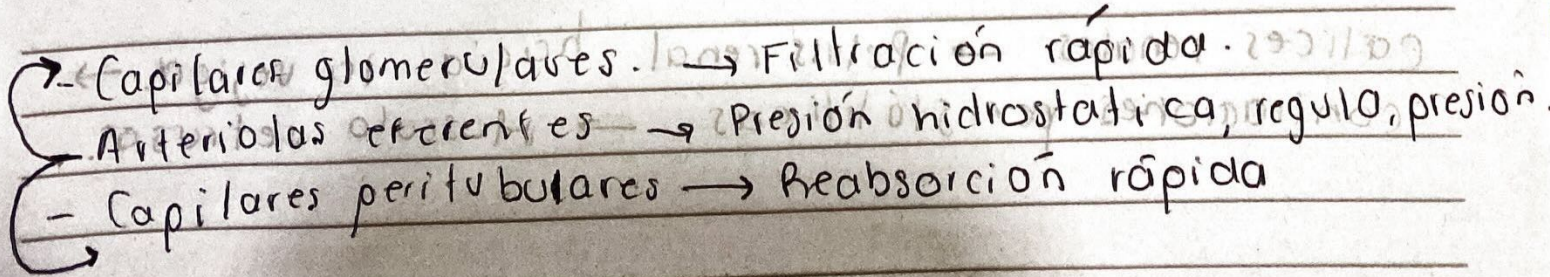 - Capilares glomerulares. → Filtración rápida.
- Arteriolas eferentes → Presión hidrostatica, regula, presión.
- Capilares peritubulares → Reabsorción rápida